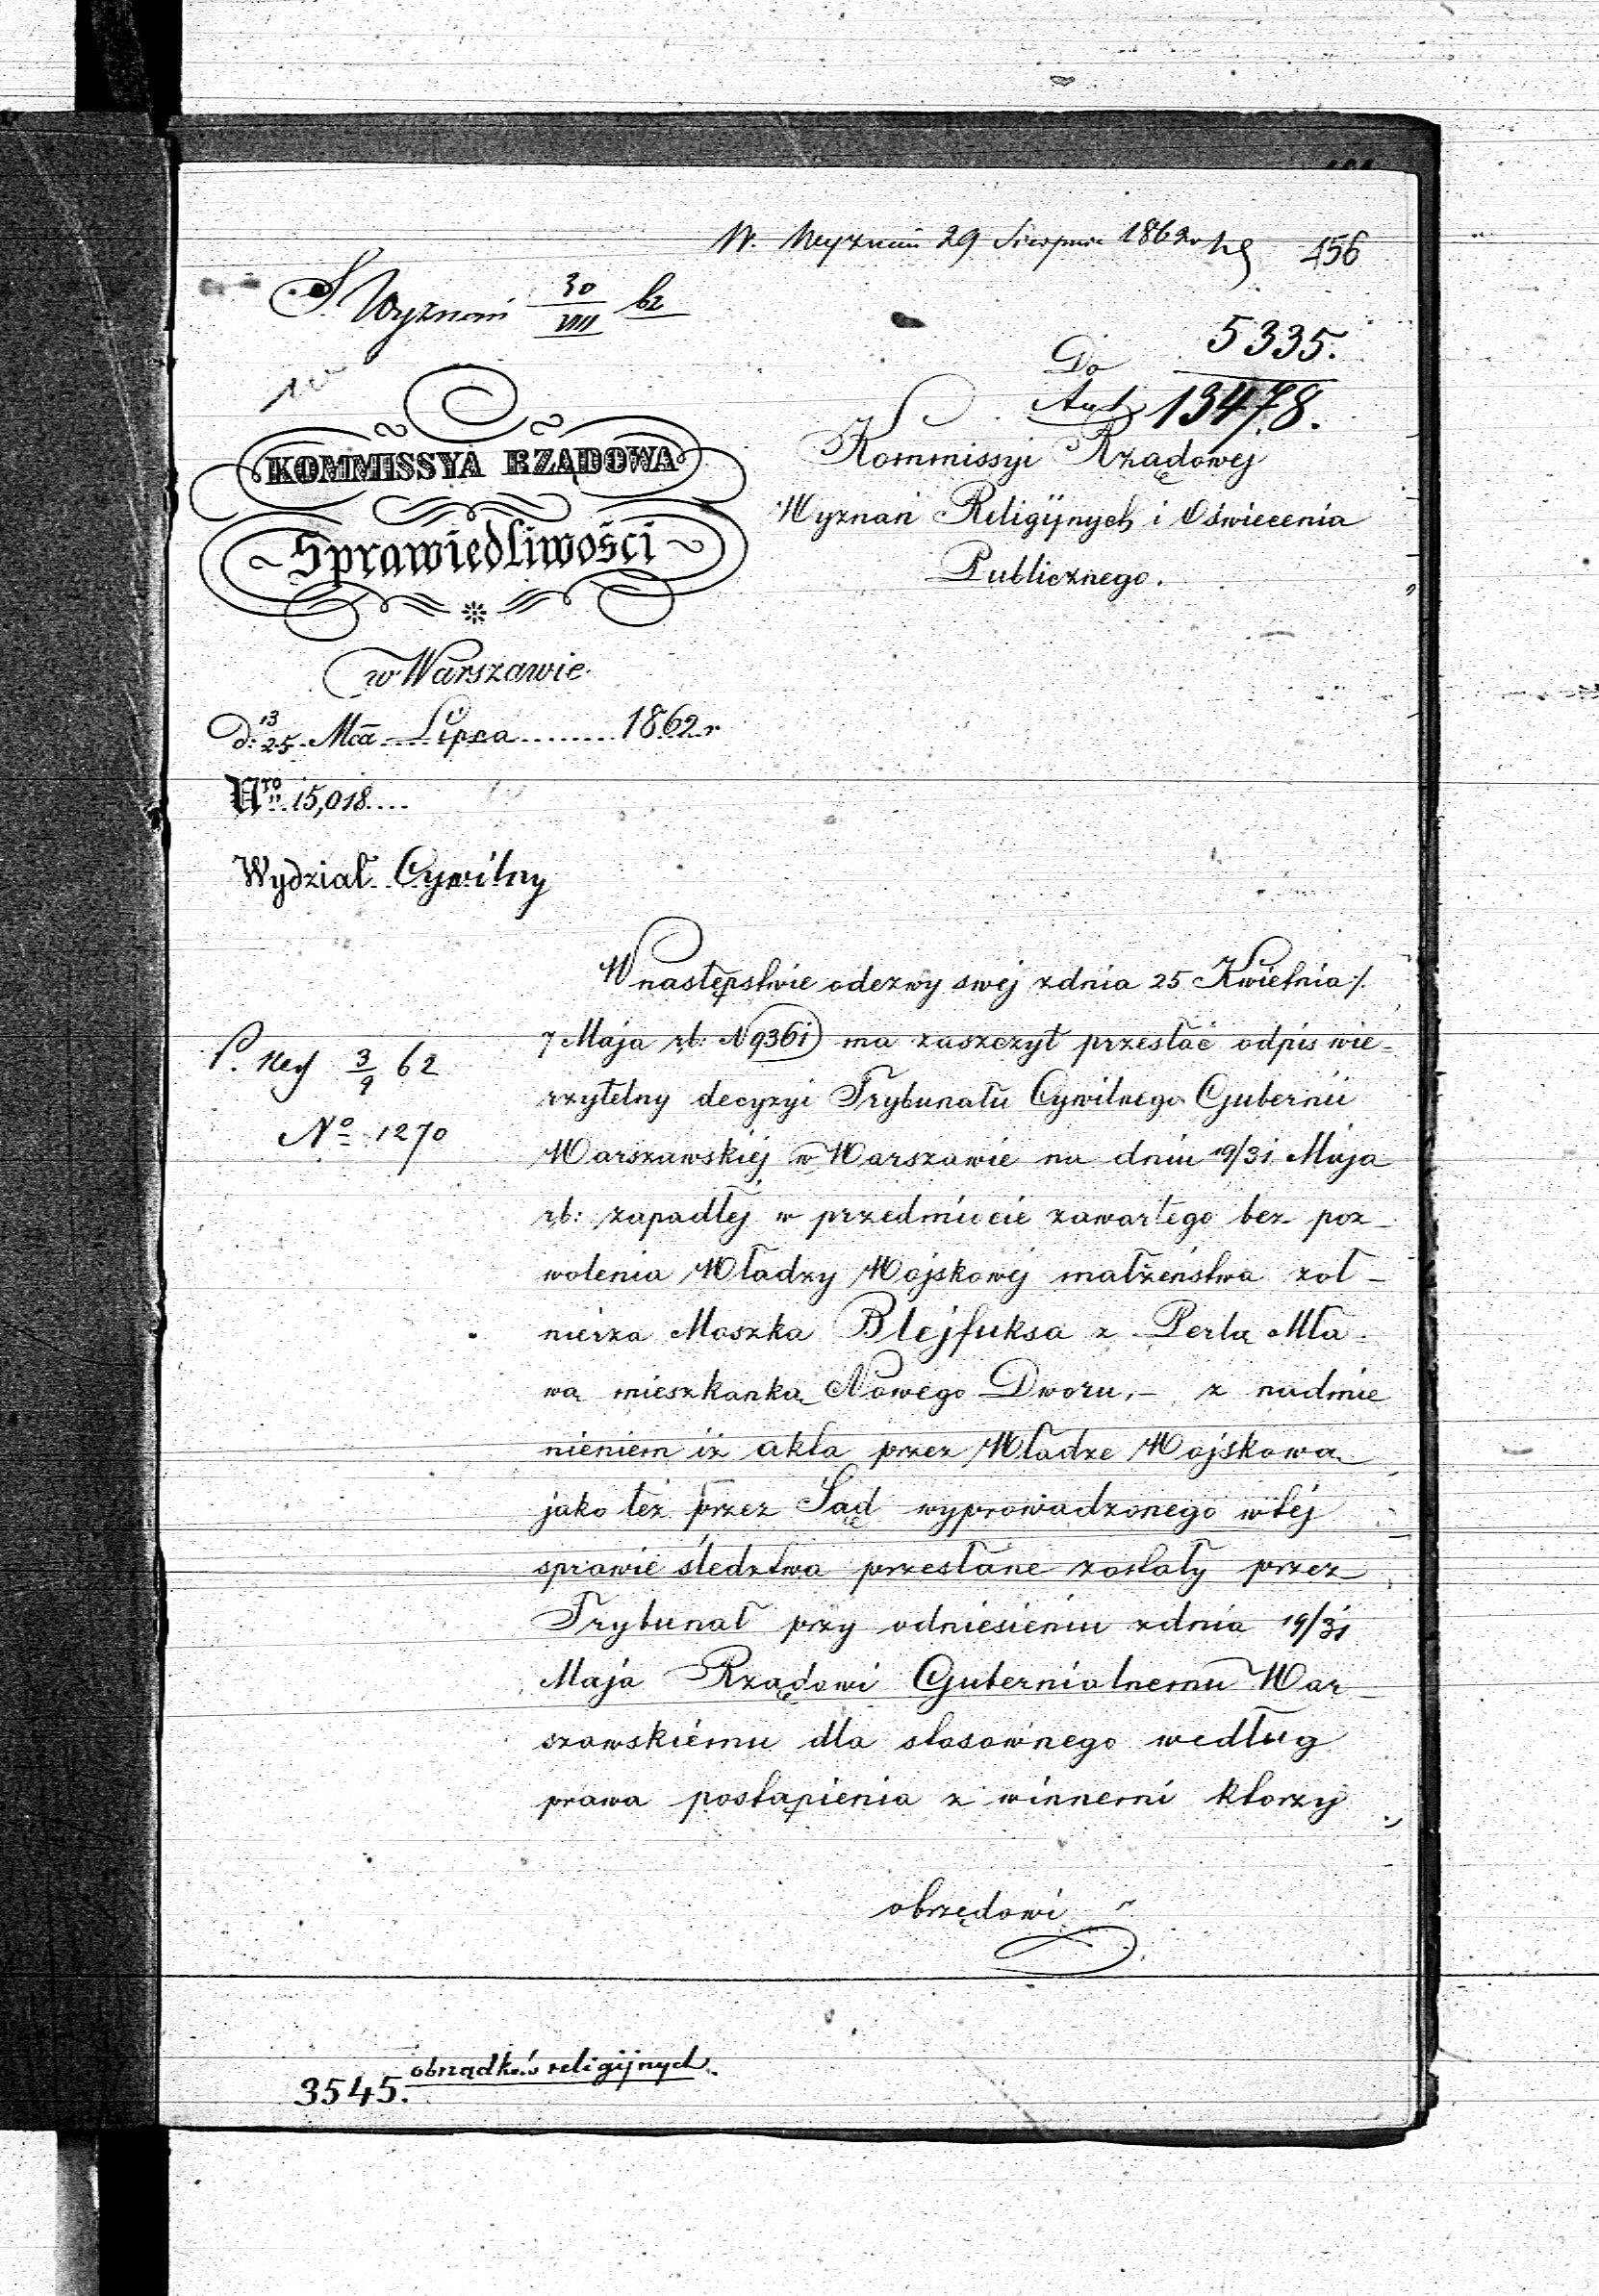 W. Wyznań 29 Sierpnia 1862 r
456
S. Wyznań 30/VIII 62
5335.
Do
13478.
KOMMISSYA RZĄDOWA
Sprawiedliwości
w Warszawie.
d. 13/25 Mca Lipca 1862 r
Nro 15,018
Wydział Cywilny
Kommissyi Rządowej
Wyznań Religijnych i Oświecenia
Publicznego.
W następstwie odezwy swej z dnia 25 Kwietnia /
7 Maja rb: N 9361 ma zaszczyt przesłać odpis wie-
rzytelny decyzyi Trybunału Cywilnego Gubernii
Warszawskiej w Warszawie na dniu 19/31 Maja
rb: zapadłej w przedmiocie zawartego bez poz-
wolenia Władzy Wojskowej małżeństwa żoł-
nierza Moszka Blejfuksa z Perlą Mła-
wą mieszkanką Nowego Dworu,- z nadmie
nieniem iż akta przez Władze Wojskową
jako też przez Sąd wyprowadzonego w tej
sprawie śledztwa przesłane zostały przez
Trybunał przy odniesieniu z dnia 19/31
Maja Rządowi Gubernialnemu War-
szawskiemu dla stosownego według
prawa postąpienia z winnemi którzy
obrzędowi
3 62
9
No 1270
obrządków religijnych.
3545.